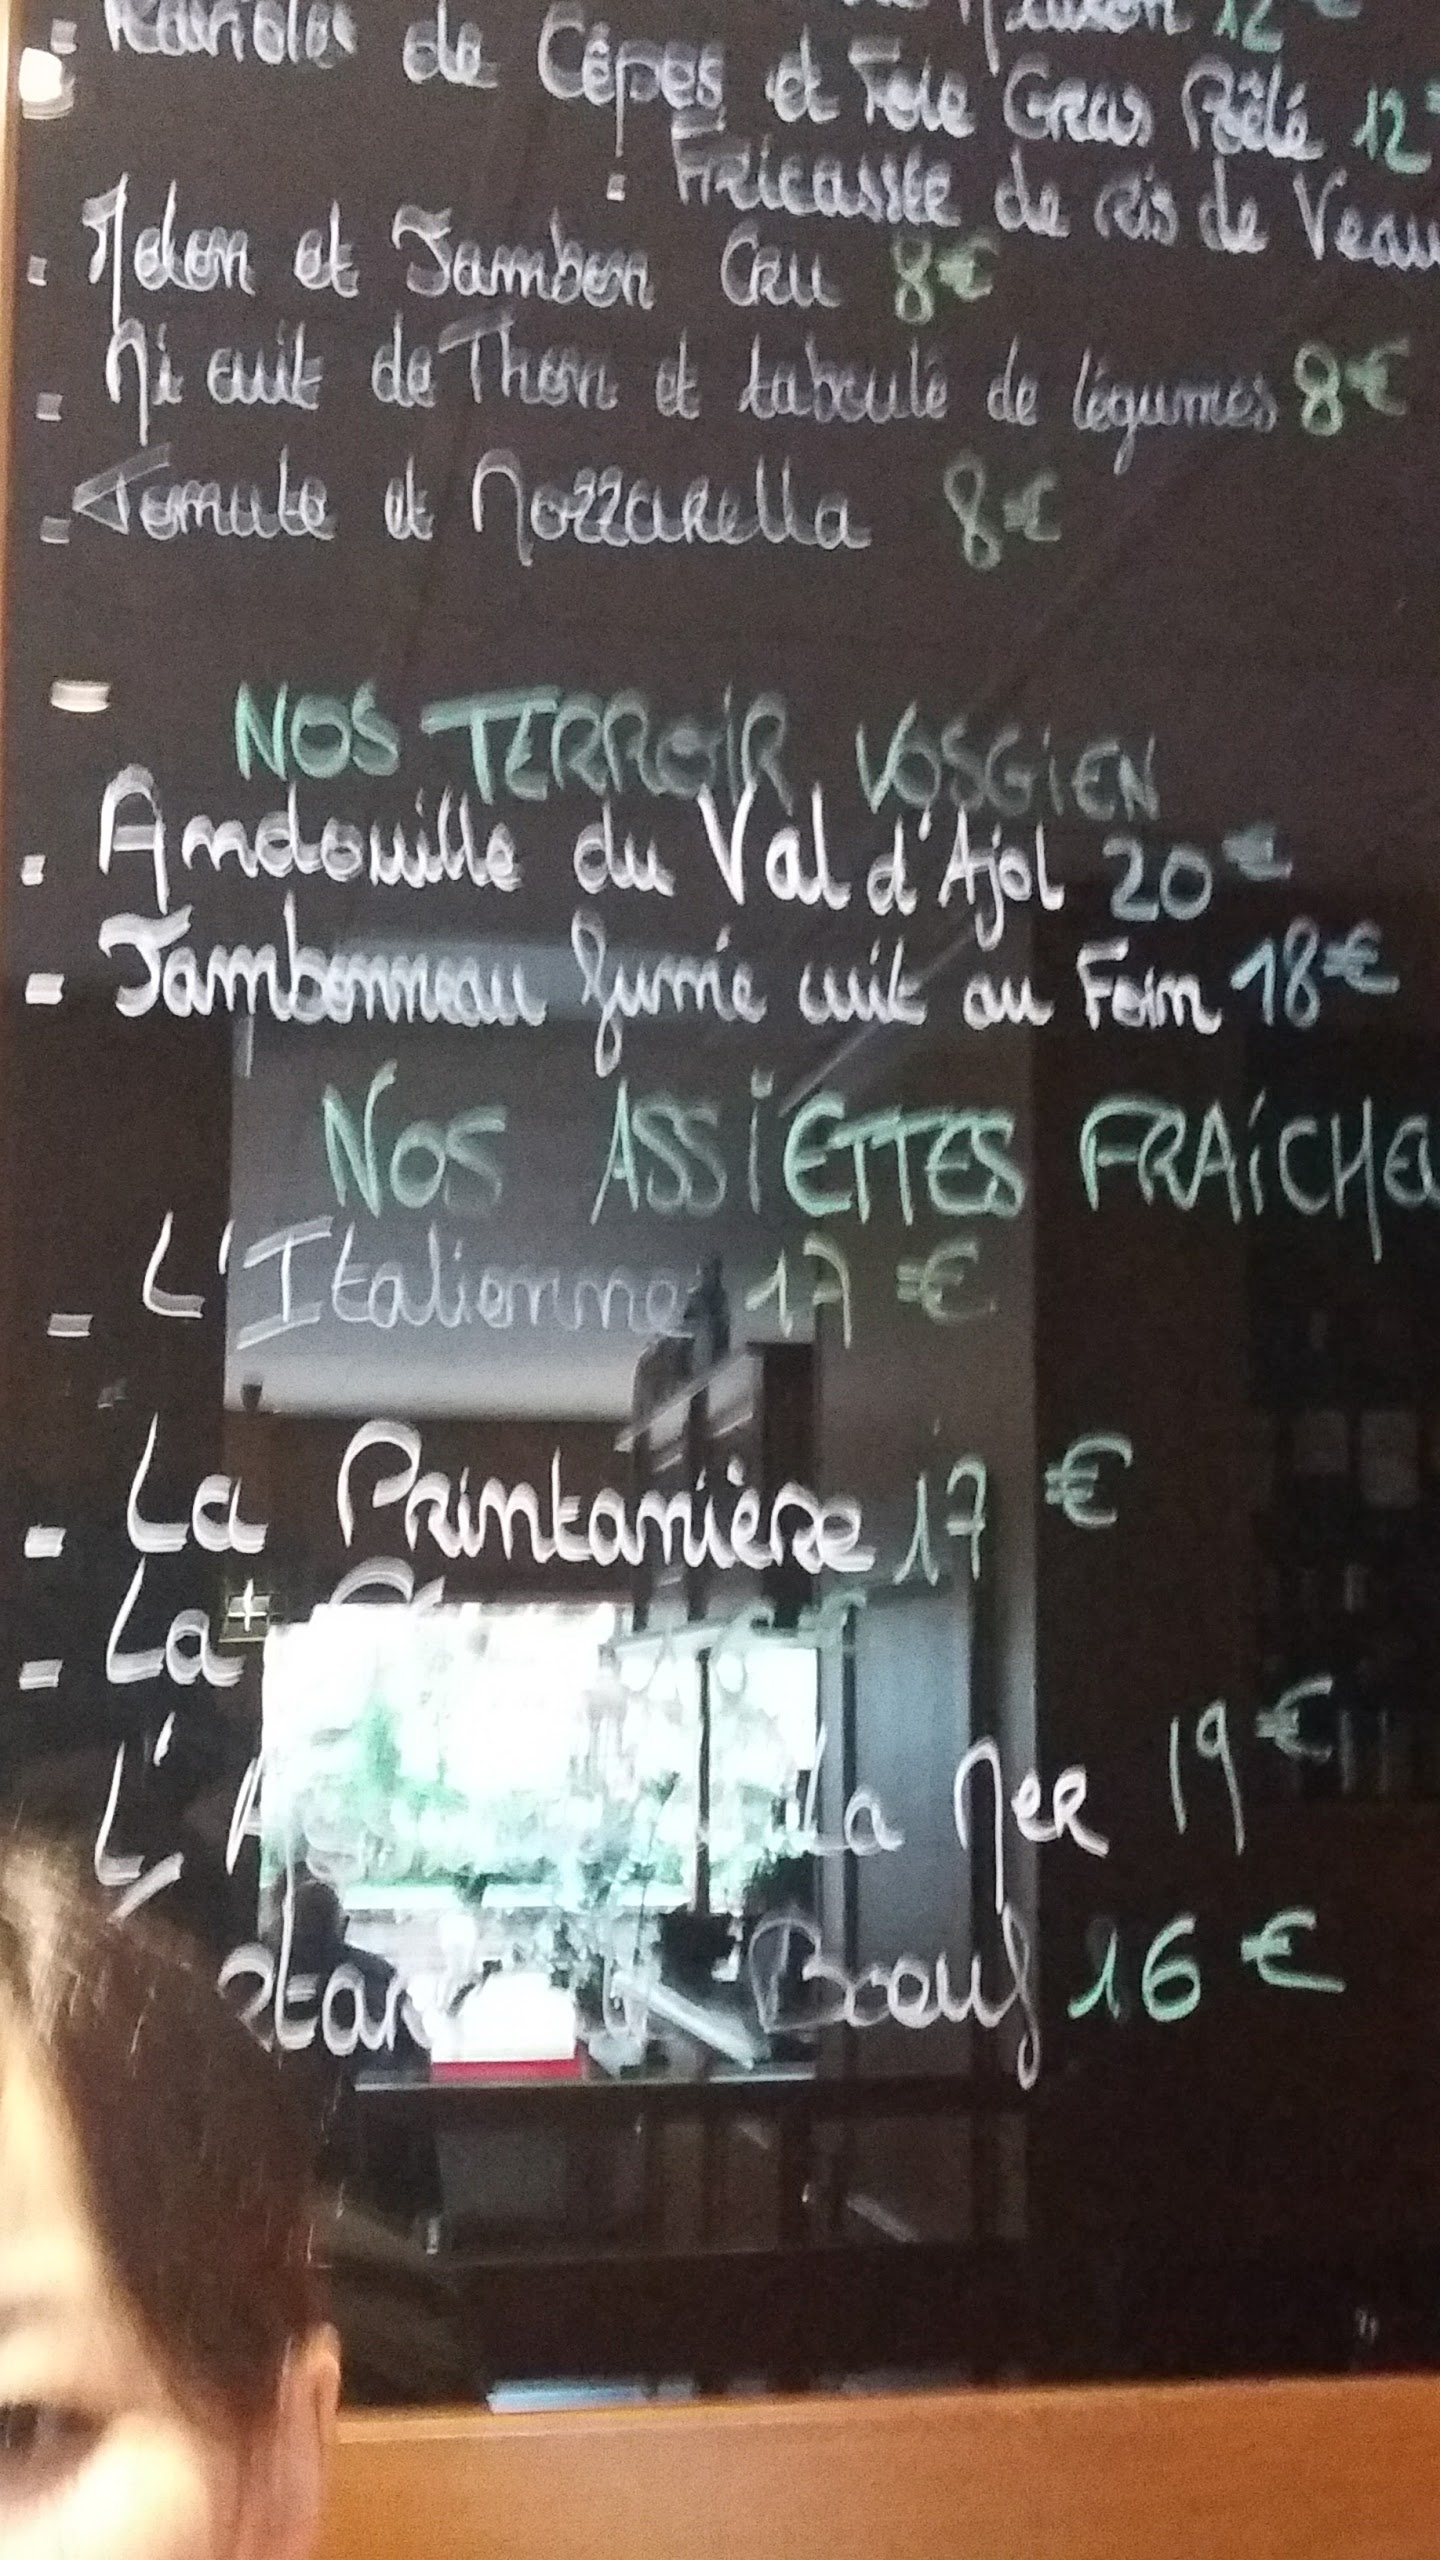 12 €
de Cêpes et Foie Gras Poêlé 12
. Fricassée de ris de Veau
. Melon et Jambon Cru 8€
. Mi cuit de Thon et taboulé de légumes 8€
. Tomate et Mozzarella 8€
- NOS TERROIR VOSGIEN
. Andouille du Val d'Ajol 20€
- Jambonneau fumé cuit au Foin 18€
NOS ASSIETTES FRAICHE
- L'Italienne 17€
- La Printanière 17€
- La
L' La Mer 19€
Boeuf 16€